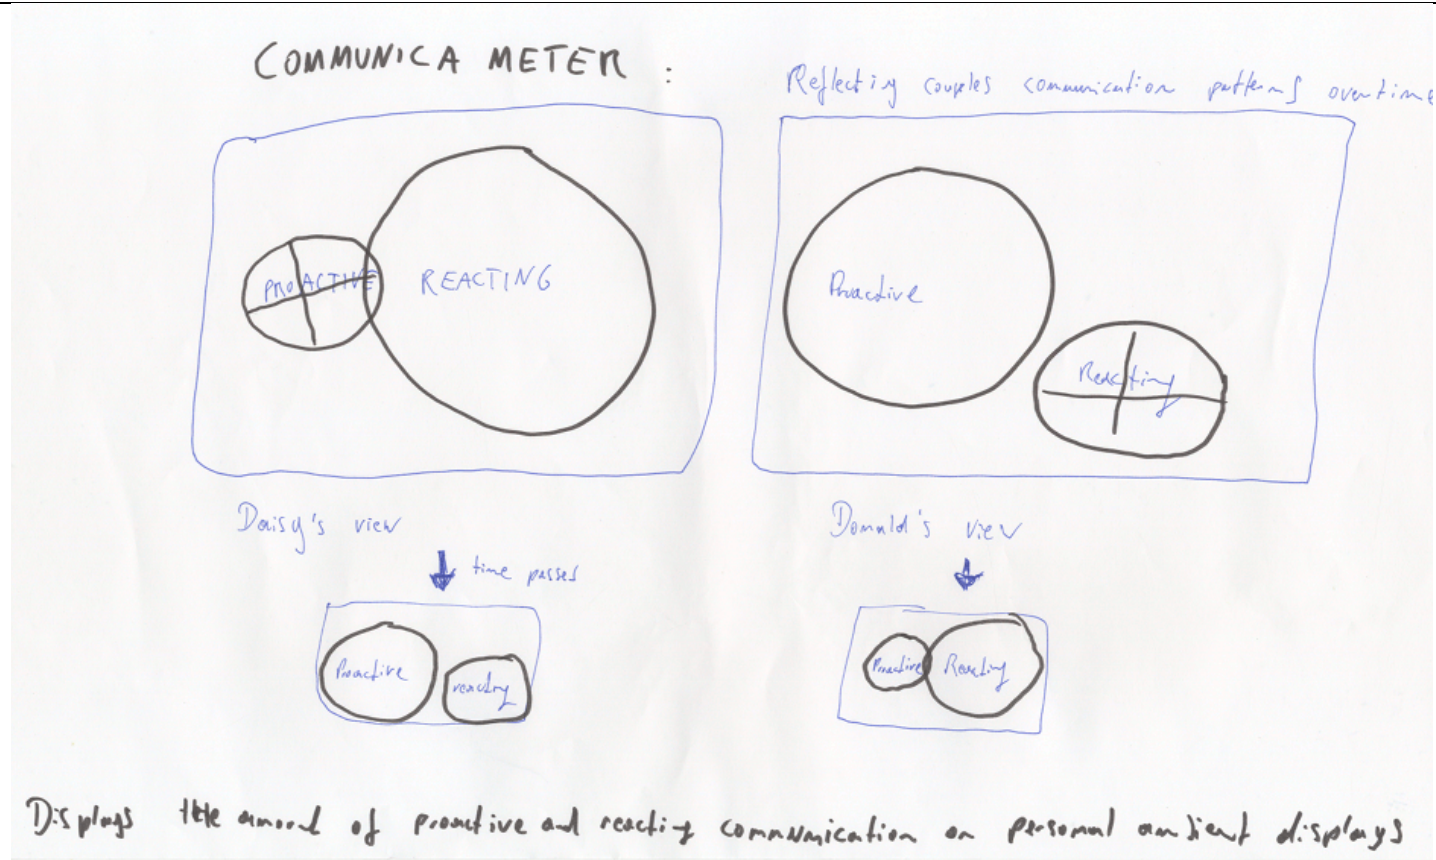 COMMUNICA METER :
Reflecting couples communication patterns over time
PROACTIVE
REACTING
Proactive
Reacting
Daisy's view
Donald's view
time passes
Proactive
reacting
Proactive
Reacting
Displays the amount of proactive and reacting communication on personal ambient displays